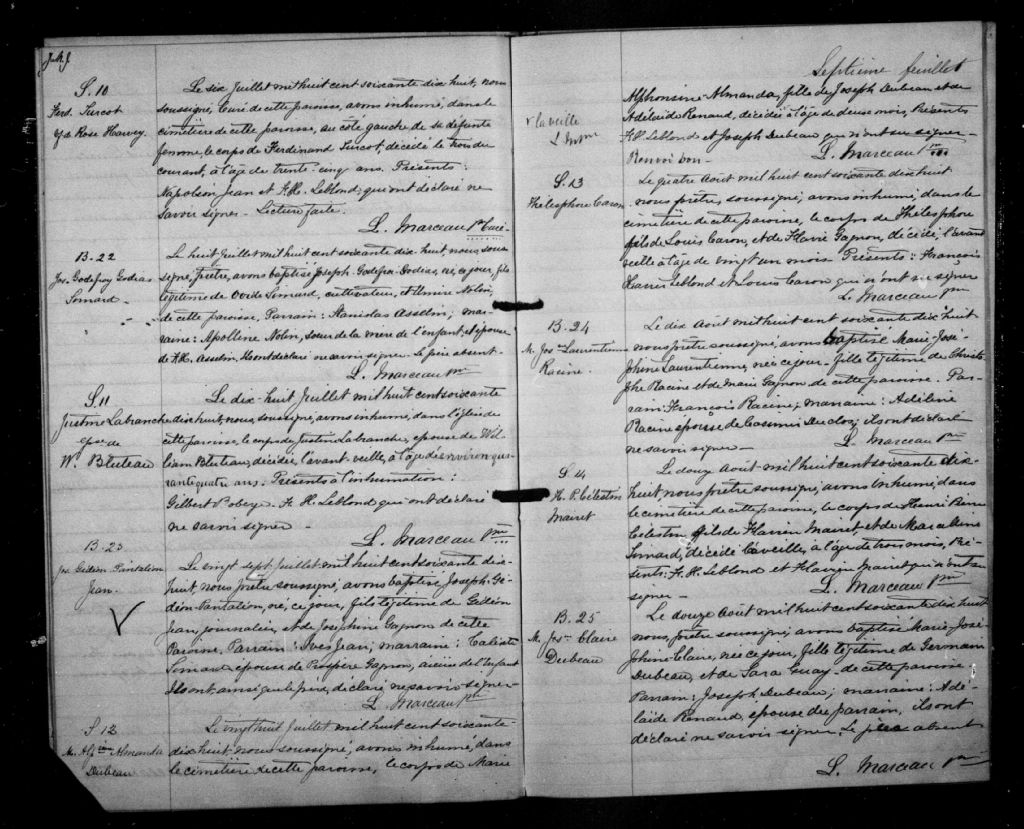 S. 10
Ferd. Turcot
épx Rose Harvey.
Le six Juillet mil huit cent soixante dix huit, nous
soussigné, Curé de cette paroisse, avons inhumé, dans le
cimetière de cette paroisse, au côté gauche de sa défunte
femme, le corps de Ferdinand Turcot, décédé le trois du
courant, à l'âge de trente-cinq ans. Présents:
Napoléon Jean et F.H. Leblond, qui ont déclaré ne
savoir signer. Lecture faite.
L. Marceau Ptre Curé
B. 22
Jos. Godefroy Godias
Simard
Le huit Juillet mil huit cent soixante dix huit, nous sous
signé, prêtre, avons baptisé Joseph Godefroi Godias, né, ce jour, fils
légitime de Ovide Simard, cultivateur, et Elmire Nolin,
de cette paroisse. Parrain: Stanislas Asselin; mar-
raine: Apolline Nolin, sœur de la mère de l'enfant, et épouse
de F.H. Asselin. Ils ont déclaré ne savoir signer. Le père absent.
L. Marceau Ptre
S. 11
Justine Labranche
épse de
W. Bluteau
Le dix-huit Juillet mil huit cent soixante
dix huit, nous, soussigné, avons inhumé, dans l'église de
cette paroisse, le corps de Justine Labranche, épouse de Wil-
liam Bluteau, décédée, l'avant-veille, à l'âge d'environ qua-
rante quatre ans. Présents à l'inhumation:
Gilbert F. H. Leblond qui ont déclaré
ne savoir signer
L. Marceau Ptre
B. 23
Jos Gédéon Pantaléon
Jean.
Le vingt sept Juillet mil huit cent soixante dix-
huit, nous prêtre soussigné, avons baptisé Joseph-Gé-
déon-Pantaléon, né, ce jour, fils légitime de Gédéon
Jean, journalier, et de Joséphine Gagnon de cette
Paroisse. Parrain: Yves Jean; marraine: Caliste
Simard épouse de Prospère Gagnon, aïeule de l'enfant
Ils ont, ainsi que le père, déclaré ne savoir signer
L. Marceau Ptre
S 12
M. Alphsine Almanda
Dubeau
Le vingt huit Juillet mil huit cent soixante-
dix huit, nous soussigné, avons inhumé, dans
le cimetière de cette paroisse, le corps de Marie
Septième feuillet
v la veille
L. M ptre
Alphonsine-Almanda, fille de Joseph Dubeau et de
Adélaïde Renaud, décédée v à l'âge de deux mois, Présents
F.H. Leblond et Joseph Dubeau qui n'ont su signer
Renvoi bon
L. Marceau Ptre
S. 13
Thélesphore Caron
Le quatre Août mil huit cent soixante dix huit
nous prêtre, soussigné, avons inhumé, dans le
cimetière de cette paroisse, le corps de Thélesphore
fils de Louis Caron, et de Flavie Gagnon, décédé, l'avant
veille à l'âge de vingt un mois. Présents: François
Leblond et Louis Caron qui n'ont su signer
L. Marceau ptre
B. 24
M. Josne Laurentienne
Racine.
Le dix Août mil huit cent soixante dix huit
nous prêtre soussigné, avons baptisé Marie José-
phine Laurentienne, née ce jour, fille légitime de Christo
phe Racine et de Marie Gagnon de cette paroisse. Par-
rain: François Racine; marraine: Adéline
Racine épouse de Casimir Duclos; ils ont déclaré
ne savoir signer
L. Marceau Ptre
S. 14
H. P. Célestin
Mairet
Le douze Août mil huit cent soixante dix-
huit, nous prêtre soussigné, avons inhumé, dans
le cimetière de cette paroisse, le corps de Henri Pierre
Célestin, fils de Flavien Mairet et de Marceline
Simard, décédé la veille, à l'âge de trois mois, Pré-
sents: F. H. Leblond et Flavien Mairet qui n'ont su
signer
L. Marceau Ptre
B. 25
M. Josne Claire
Dubeau
Le douze Août mil huit cent soixante dix huit
nous, prêtre soussigné, avons baptisé Marie José-
phine Claire, née ce jour, fille légitime de Germain
Dubeau, et de Sara Guay de cette paroisse
Parrain: Joseph Dubeau; marraine: Adé-
laïde Renaud, épouse du parrain, ils ont
déclaré ne savoir signer, Le père absent
L. Marceau Ptre